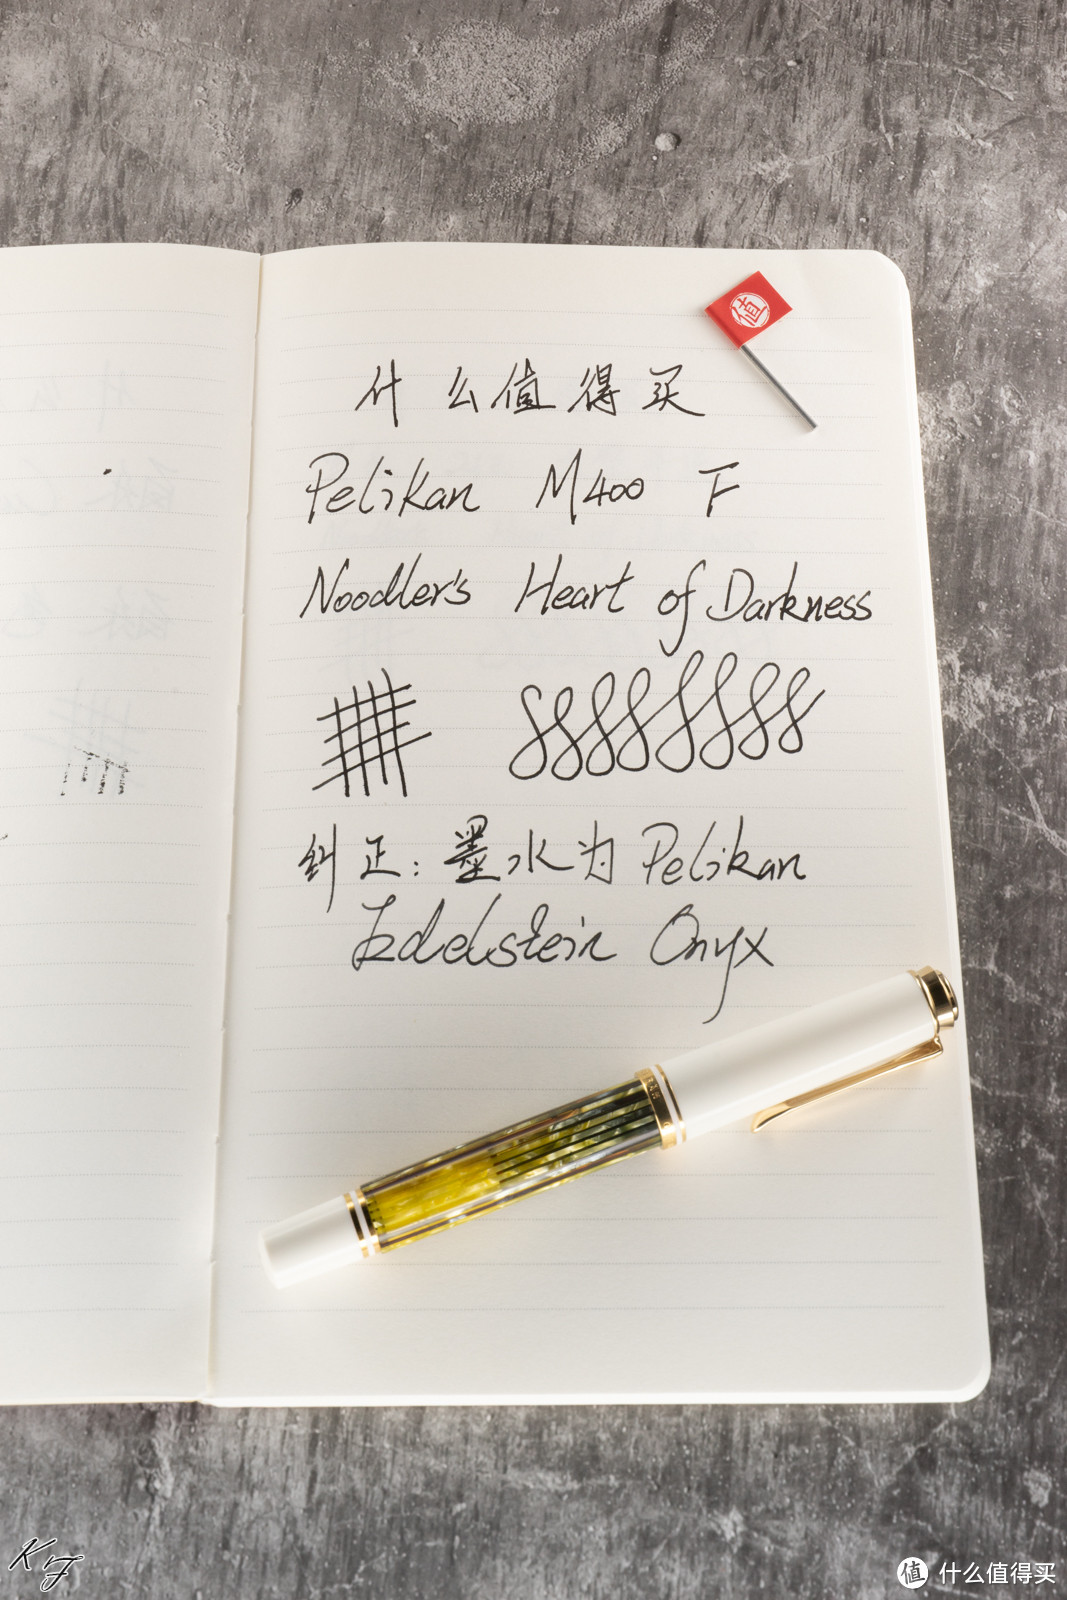 值
什么值得买
Pelikan M400 F
Noodler's Heart of Darkness
纠正：墨水为 Pelikan
Edelstein Onyx
KF
值 什么值得买